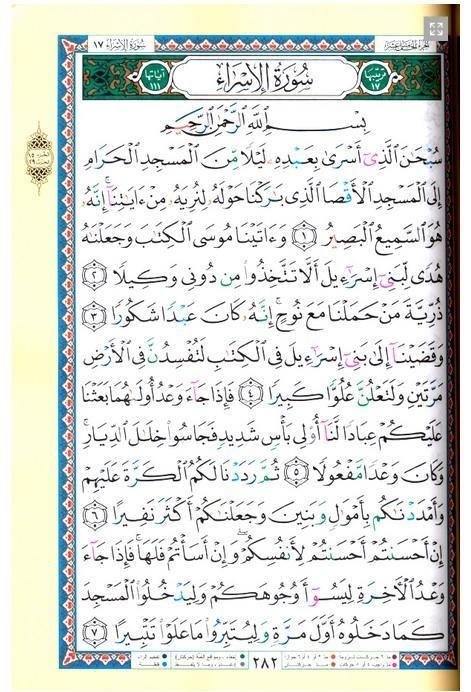 سُورَةُ الإِسْرَاء ١٧
الجزء الخامس عشر
ترتيبها ١٧
سُورَةُ الإِسْرَاءِ
آياتها ١١١
بِسْمِ ٱللَّهِ ٱلرَّحْمَٰنِ ٱلرَّحِيمِ
سُبْحَٰنَ ٱلَّذِىٓ أَسْرَىٰ بِعَبْدِهِۦ لَيْلًا مِّنَ ٱلْمَسْجِدِ ٱلْحَرَامِ
إِلَى ٱلْمَسْجِدِ ٱلْأَقْصَا ٱلَّذِى بَٰرَكْنَا حَوْلَهُۥ لِنُرِيَهُۥ مِنْ ءَايَٰتِنَآ إِنَّهُۥ
هُوَ ٱلسَّمِيعُ ٱلْبَصِيرُ ١ وَءَاتَيْنَا مُوسَى ٱلْكِتَٰبَ وَجَعَلْنَٰهُ
هُدًى لِّبَنِىٓ إِسْرَٰٓءِيلَ أَلَّا تَتَّخِذُوا۟ مِن دُونِى وَكِيلًا ٢
ذُرِّيَّةَ مَنْ حَمَلْنَا مَعَ نُوحٍ إِنَّهُۥ كَانَ عَبْدًا شَكُورًا ٣
وَقَضَيْنَآ إِلَىٰ بَنِىٓ إِسْرَٰٓءِيلَ فِى ٱلْكِتَٰبِ لَتُفْسِدُنَّ فِى ٱلْأَرْضِ
مَرَّتَيْنِ وَلَتَعْلُنَّ عُلُوًّا كَبِيرًا ٤ فَإِذَا جَآءَ وَعْدُ أُولَىٰهُمَا بَعَثْنَا
عَلَيْكُمْ عِبَادًا لَّنَآ أُو۟لِى بَأْسٍ شَدِيدٍ فَجَاسُوا۟ خِلَٰلَ ٱلدِّيَارِ
وَكَانَ وَعْدًا مَّفْعُولًا ٥ ثُمَّ رَدَدْنَا لَكُمُ ٱلْكَرَّةَ عَلَيْهِمْ
وَأَمْدَدْنَٰكُم بِأَمْوَٰلٍ وَبَنِينَ وَجَعَلْنَٰكُمْ أَكْثَرَ نَفِيرًا ٦
إِنْ أَحْسَنتُمْ أَحْسَنتُمْ لِأَنفُسِكُمْ وَإِنْ أَسَأْتُمْ فَلَهَا فَإِذَا جَآءَ
وَعْدُ ٱلْءَاخِرَةِ لِيَسُۥٓـُٔوا۟ وُجُوهَكُمْ وَلِيَدْخُلُوا۟ ٱلْمَسْجِدَ
كَمَا دَخَلُوهُ أَوَّلَ مَرَّةٍ وَلِيُتَبِّرُوا۟ مَا عَلَوْا۟ تَتْبِيرًا ٧
٢٨٢